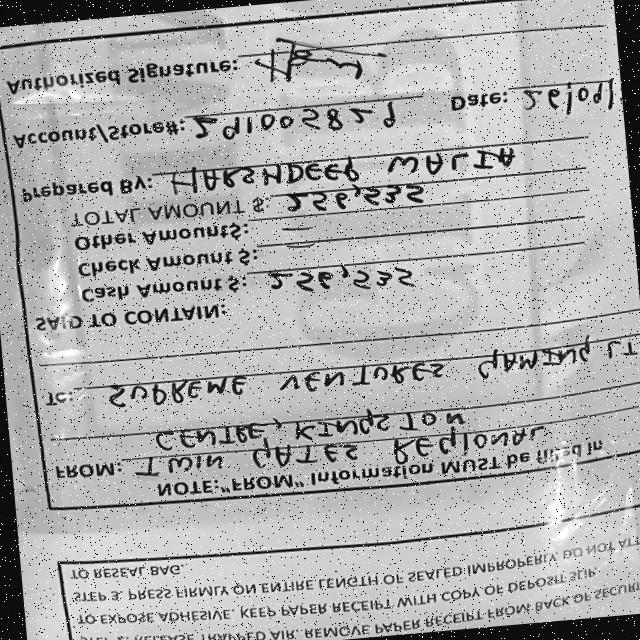 STEP 2. RELEASE TRAPPED AIR, REMOVE PAPER RECEIPT FROM BACK OF SECURI
TO EXPOSE ADHESIVE. KEEP PAPER RECEIPT WITH COPY OF DEPOSIT SLIP.
STEP 3. PRESS FIRMLY ON ENTIRE LENGTH OF SEALED IMPROPERLY DO NOT ATT
TO RESEAL BAG.
NOTE:"FROM" Information MUST be filled in
FROM: TWIN GATES REGIONAL
CENTRE, KINGSTON
To: SUPREME VENTURES GAMING LT
SAID TO CONTAIN:
Cash Amount $: 256,535
Check Amount $:
Other Amount$:
TOTAL AMOUNT $: 256,535
Prepared By: HARSHDEEP WALIA
Account/Store#: 291005829 Date: 26/09/
Authorized Signature: